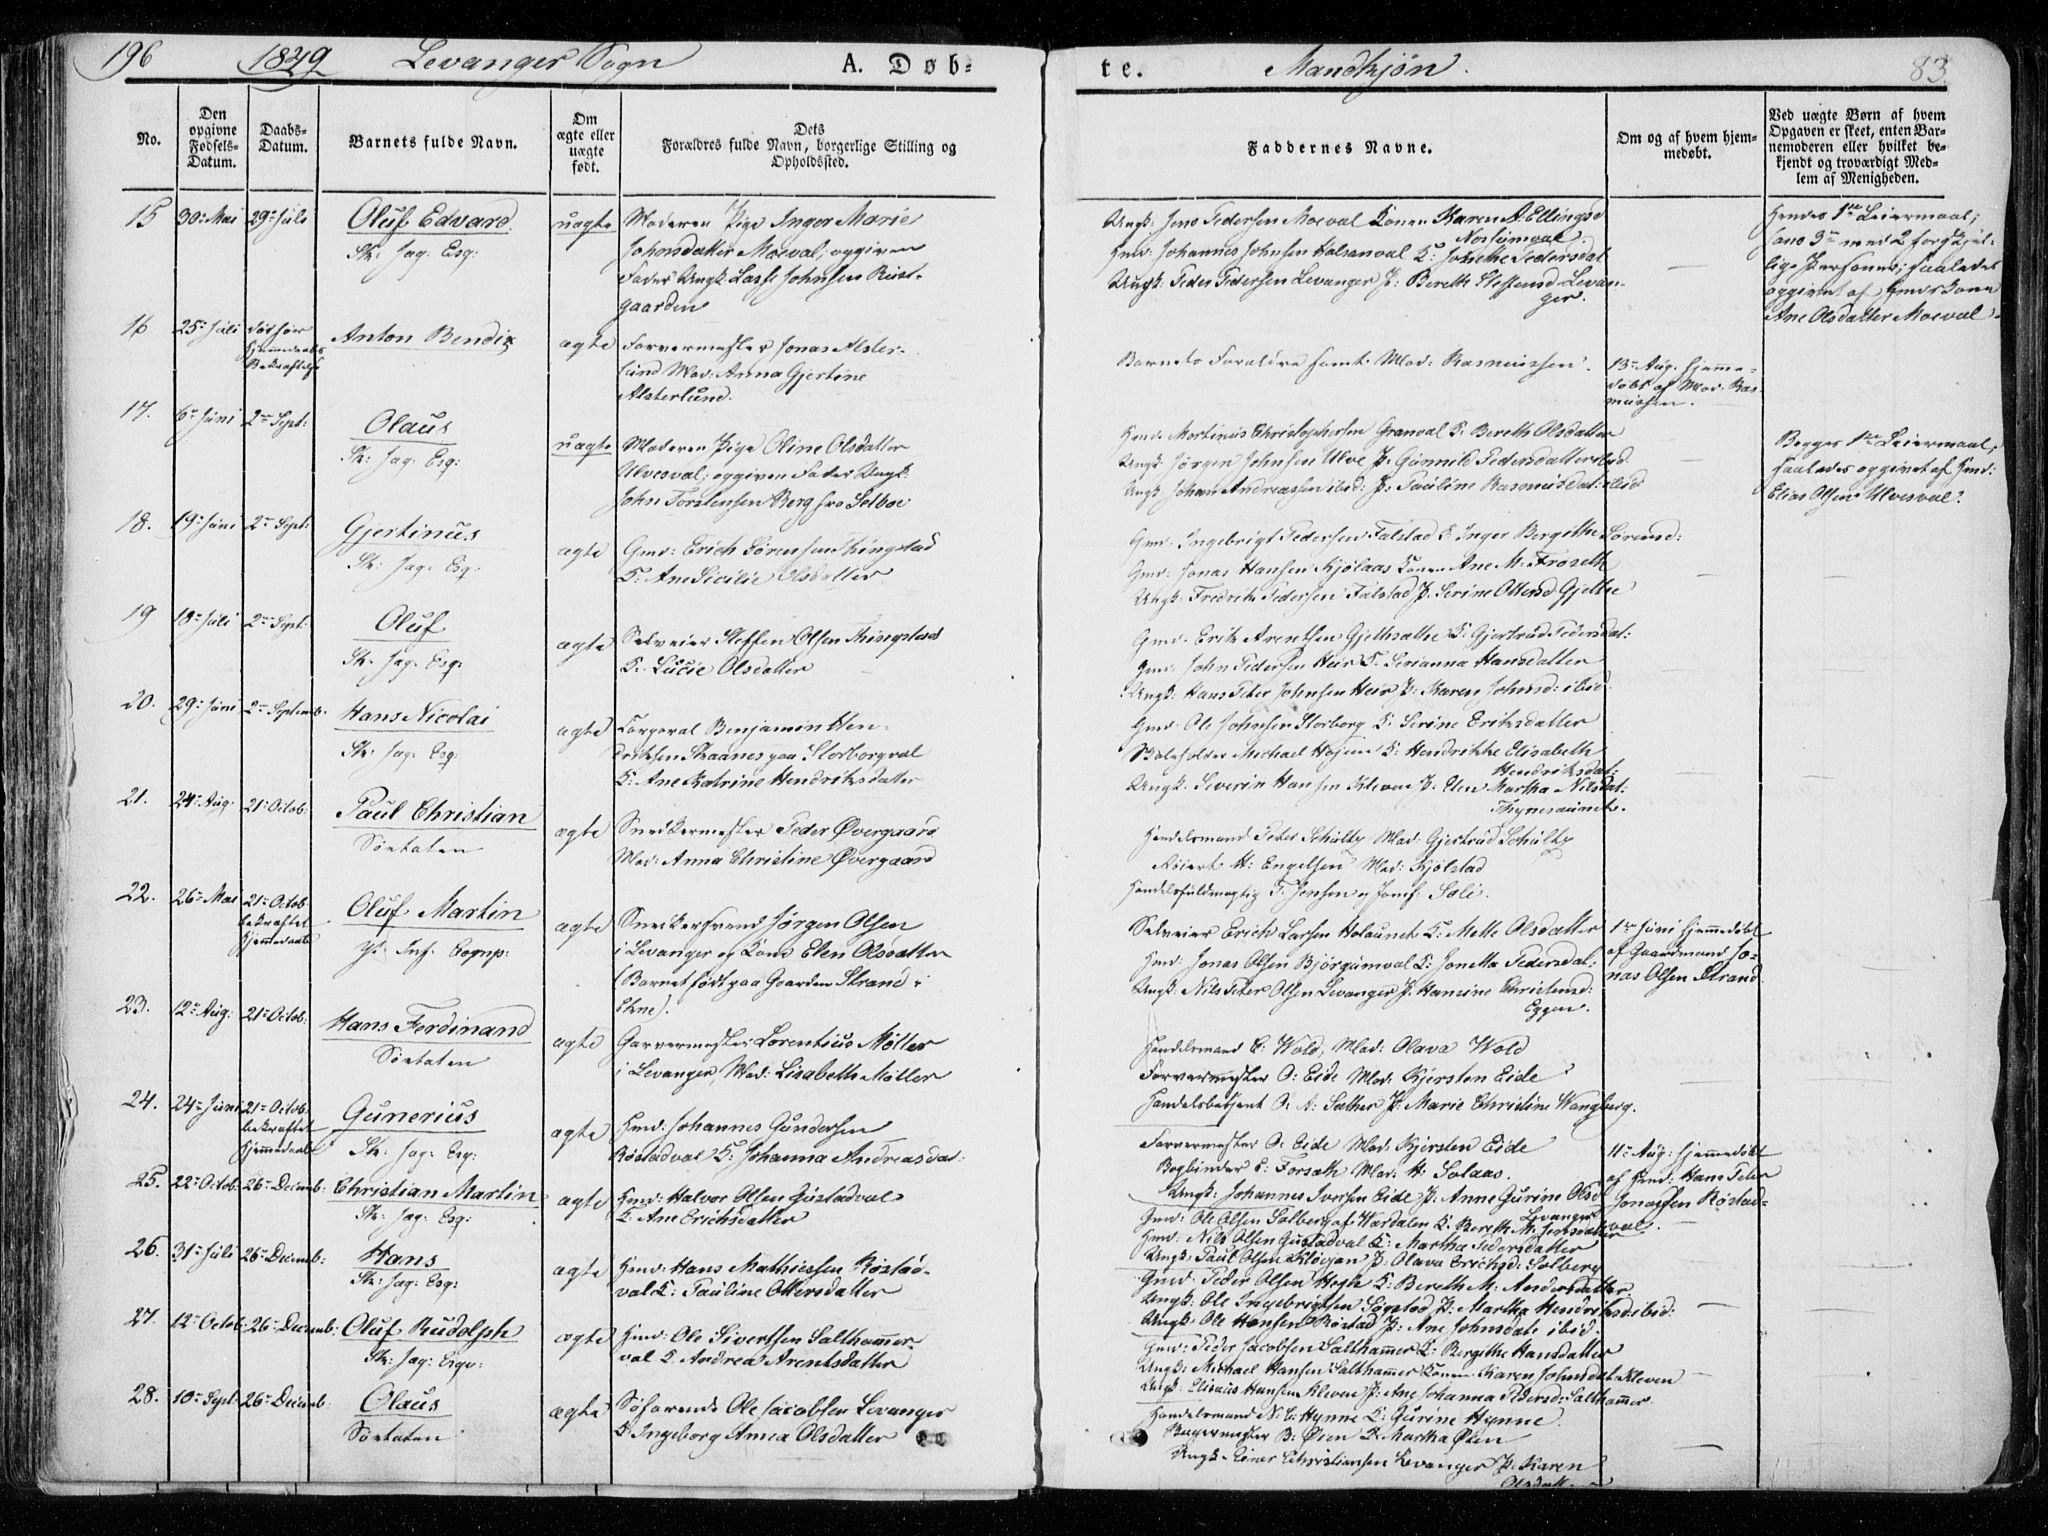 196 1849 Levanger Sogn A. Døb-
te. Mandkjøn. 83
No.
Den opgivne Fødsels-Datum.
Daabs-Datum.
Barnets fulde Navn.
Om ægte eller uægte født.
Dets Forældres fulde Navn, borgerlige Stilling og Opholdssted.
Faddernes Navne.
Om og af hvem hjem-medøbt.
Ved uægte Børn af hvem Opgaven er skeet, enten Bar-nemoderen eller hvilket be-kjendt og troværdigt Med-lem af Menigheden.
15 30te Mai 29de Juli Oluf Edvard uægte Moderen Pige Inger Marie
Sk: Jag: Esq: Johnsdatter Moeval; opgiven
Fader Ungk: Lasse Johnsen Rust-
gaarden
Ungk: Jens Pedersen Moeval Konen Karen A. Ellingsd
Norsumval
Gmd: Johannes Johnsen Halsanval K: Johanne Pedersdat
Ungk: Peder Pedersen Levanger P: Bereth Steffensd Levan-
ger.
Hendes 1ste Leiermaal;
hans 3die med 2 forskjel-
lige Personer; saaledes
opgivet af Gmdskone
Ane Olsdatter Moeval.
16 25de Juli Anton Bendix ægte Farvermester Jonas Alster-
Hjemmedaabs lund Mad: Anna Gjertine
Bekræftelse Alsterlund.
Barnets Forældre samt Mad: Rasmussen.
13de Aug. hjemme-
døbt af Mad. Ras-
mussen.
17. 6te Juni 2den Sept: Olaus uægte Moderen Pige Oline Olsdatter
Sk: Jag: Esq: Ulvesval; opgiven Fader Ungk:
John Torstensen Berg fra Selboe
Gmd: Martinus Christophersen Granval K: Bereth Olsdatter
Ungk: Jørgen Johnsen Ulve P: Gunnild Pedersdatter ibid.
Ungk. Johan Andreassen ibid: P: Pauline Rasmusdat: ibid
Begges 1ste Leiermaal;
saaledes opgivet af Gmd:
Elias Olsen Ulvesval.
18. 19de Juni 2den Sept: Gjertinus ægte Gmd: Erich Sørensen Thingstad
Sk: Jag: Esq: K: Ane Sicilie Olsdatter
Gmd: Ingebrigt Pedersen Falstad K: Inger Bergithe Sørensd:
Gmd: Jonas Hansen Kjølaas Konen Ane M: Froseth
Ungk: Fredrik Pedersen Falstad P: Serine Ottersd Gjelhe
19 18de Juli 2den Sept: Oluf ægte Selveier Steffen Olsen Thingstad
Sk: Jag: Esq: K: Lucie Olsdatter
Gmd: Erik Arentsen K: Gjertrud Pedersdat:
Gmd: John Pedersen Heir K: Serianna Hansdatter
Ungk: Hans Peter Johnsen Heir P: Karen Johnsd: ibid.
20. 29de Juni 2den Septemb. Hans Nicolai ægte Corporal Benjamin Hen-
Sk: Jag: Esq: driksen Skaanes paa Storborgval
K: Ane Katrine Hendriksdatter
Gmd: Ole Johnsen Storborg K: Serine Eriksdatter
Michael Hojem K: Hendrikke Elisabeth
Hendriksdat:
Ungk: Severin Hansen Kleven P: Elen Martha Nilsdat:
21. 24de Aug: 21de Octob: Paul Christian ægte Snedkermester Peder Øvergaard
Søetaten Mad: Anna Christine Øvergaard
Handelsmand Peter Schultz Mad: Gjertrud Schultz
H: Engelsen Mad: Kjølstad
Handelsfuldmægtig T. Jensen og Jomf: Soli.
22. 26de Mai 21de Octob Oluf Martin ægte Snedkersvend Jørgen Olsen
bekræftet Inf: i Levanger og Kone Elen Olsdatter
Hjemmedaab (Barnet født paa Gaarden Strand i
Ekne).
Selveier Erich Larsen Holaunet K: Mette Olsdatter
Gmd: Jonas Olsen Bjørgumval K: Jonetta Pedersdat:
Ungk: Nils Peter Olsen Levanger P: Hansine Christensd:
Eggen.
1ste Juni hjemmedøbt
af Gaardmand Jo-
nas Olsen Strand.
23. 12te Aug: 21de Octob: Hans Ferdinand ægte Garvermester Lorentius Møller
Søetaten i Levanger, Mad: Lisabeth Møller
Handelsmand C: Wold, Mad: Olava Wold
Farvermester O: Eide Mad: Kjersten Eide
Handelsbetjent O: A: Sæther P: Marie Christine Wangberg.
24. 24de Juni 21de Octob: Gunerius ægte Gmd: Johannes Gundersen
bekræftet Sk: Jag: Esq: Røstadval K: Johanna Andreasdat:
Hjemmedaab
Farvermester O: Eide Mad: Kjersten Eide
Bogbinder E: Forsæth Mad: H: Solaas.
Ungk: Johannes Iversen Eide P: Anne Gurine Olsd
Levanger
11te Aug: hjemmedøbt
af Gmd: Hans Peter
Jonassen Røstad-
val.
25. 22de Octob: 26de Decemb: Christian Martin ægte Gmd: Halvor Olsen Gustadval
Sk: Jag: Esq: K: Ane Erichsdatter
Gmd: Ole Olsen Solberg af Værdalen K: Bereth M:
Gmd: Nils Olsen Gustadval K: Martha Pedersdatter
Ungk: Paul Olsen P: Olava Erichsd: Solberg
26. 31te Juli 26de Decemb: Hans ægte Gmd: Hans Mathiessen Røstad-
Sk: Jag: Esq: val K: Pauline Ottersdatter
Gmd: Peder Olsen K: Bereth M: Andersdatter
Ungk: Ole Ingebrigtsen Søgstad P: Martha Hendriksd: ibid:
Ungk: Ole Hansen Røstad P: Ane Johnsdat: ibid.
27. 12te Octob: 26de Decemb: Oluf Rudolph ægte Gmd: Ole Sivertsen Salthammer-
Sk: Jag: Esqv: val K: Andrea Arentsdatter
Gmd: Peder Jacobsen Salthammer K: Bergithe Hansdatter
Ungk: Michael Hansen Salthammer Konen Karen Johnsdat: Kleven
Ungk: Elisæus Hansen Kleven P: Ane Johanna Pedersd: Salthammer.
28. 10de Sept: 26de Decemb: Olaus ægte Søfarende Ole Jacobsen Levanger
Søetaten K: Ingeborg Anna Olsdatter
Handelsmand N: C: Hynne K: Gurine Hynne.
Bagermester B: Øien K: Martha Øien
Ungk: Christiansen Levanger P: Karen
Olsdatt